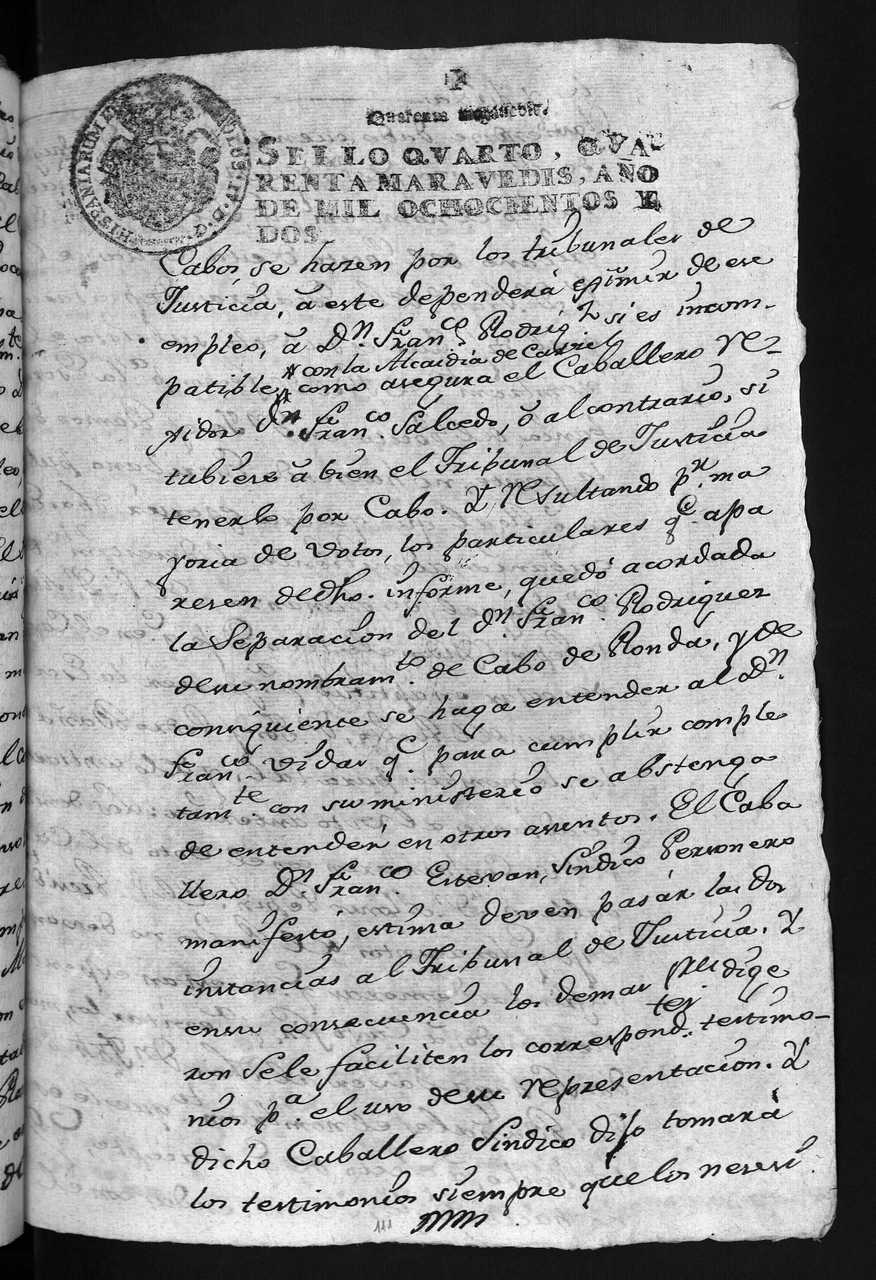 Quarenta maravedis.
SELLO QVARTO, QVA-
RENTA MARAVEDIS, AÑO
DE MIL OCHOCIENTOS Y
DOS.
HISPANIARUM
Cabos se hazen por los tribunales de
Justicia, â este dependerá eximir de ese
empleo, â Dn. Franco. Rodrigz si es incom-
con la Alcaidia de Carzel
patible, como asegura el Caballero Re-
xidor Dn. Franco. Salcedo, ô al contrario, si
tubiese â bien el Tribunal de Justicia
tenerlo por Cabo. Y Resultando pr. ma
yoria de votos, los particulares qe. apa
resen de dho. informe, quedó acordada
la Separacion del Dn. Franco. Rodriguez
de su nombramto. de Cabo de Ronda, y de
consiguiente se haga entender al Dn.
Franco. Vidar qe. para cumplir comple
tamte. con su ministerio se abstenga
de entender en otros asuntos. El Caba
llero Dn. Franco. Estevan, Sindico Personero
manifestó, estima deven pasár las dos
instancias al Tribunal de Justicia. Y
en su consecuencia los demas Sres. dixe
ron se le faciliten los correspond.tes testimo-
nios pa. el uso de su representacion. Y
dicho Caballero Sindico dijo tomará
los testimonios siempre que los nesesi
111